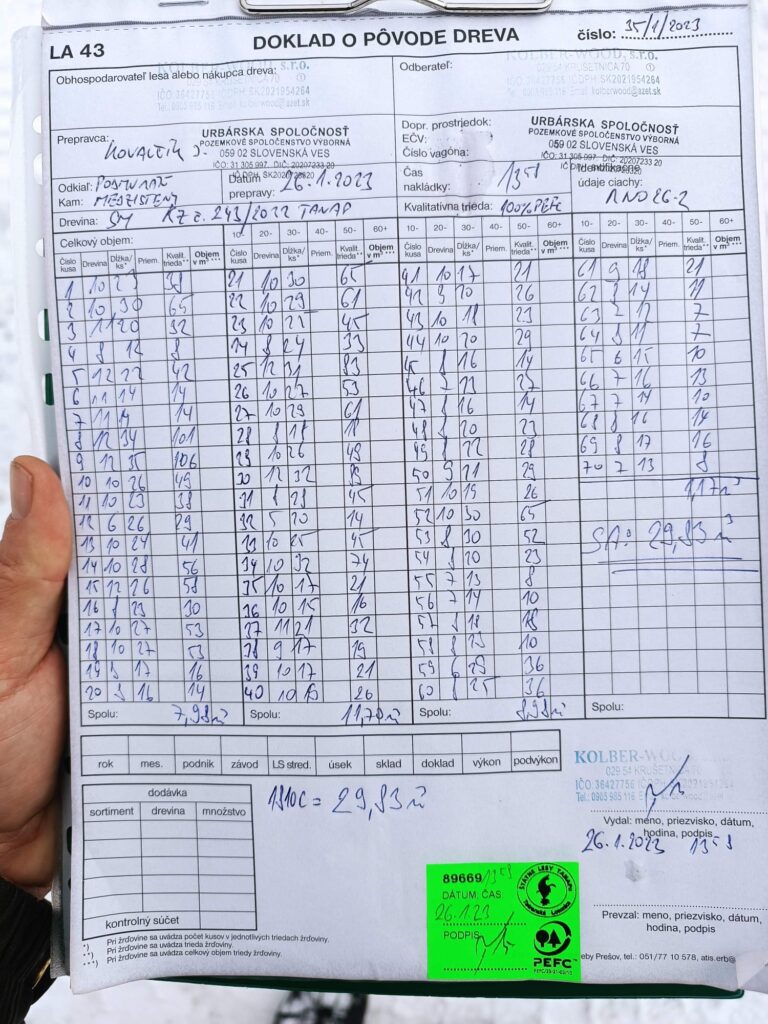 LA 43
DOKLAD O PÔVODE DREVA
číslo: 35/1/2023
Obhospodarovateľ lesa alebo nákupca dreva:
KOLBER-WOOD, s.r.o.
Odberateľ:
KOLBER-WOOD, s.r.o.
Prepravca:
URBÁRSKA SPOLOČNOSŤ
POZEMKOVÉ SPOLOČENSTVO VÝBORNÁ
059 02 SLOVENSKÁ VES
Dopr. prostriedok:
EČV:
Číslo vagóna:
URBÁRSKA SPOLOČNOSŤ
POZEMKOVÉ SPOLOČENSTVO VÝBORNÁ
059 02 SLOVENSKÁ VES
Odkiaľ:
Kam:
Dátum prepravy: 26.1.2023
Čas nakládky: 13 58
Identifikačné údaje ciachy:
Drevina: SM
243/2022 TANAP
Kvalitatívna trieda: 100% PEFC
Celkový objem:
10- 20- 30- 40- 50- 60+
10- 20- 30- 40- 50- 60+
10- 20- 30- 40- 50- 60+
Číslo kusa Drevina Dĺžka/ks* Priem. Kvalit. trieda** Objem v m³ ***
Číslo kusa Drevina Dĺžka/ks* Priem. Kvalit. trieda** Objem v m³ ***
Číslo kusa Drevina Dĺžka/ks* Priem. Kvalit. trieda** Objem v m³ ***
Číslo kusa Drevina Dĺžka/ks* Priem. Kvalit. trieda** Objem v m³ ***
1 10 23 38 21 10 30 65 41 10 17 21 61 9 18 21
2 10 30 65 22 10 29 61 42 9 20 26 62 8 14 11
3 11 20 32 23 10 25 45 43 10 18 23 63 7 12 7
4 8 12 8 24 8 24 33 44 10 20 29 64 8 11 7
5 12 22 42 25 12 31 83 45 8 16 14 65 6 15 10
6 11 14 14 26 10 27 53 46 7 23 27 66 7 16 13
7 11 14 14 27 10 29 61 47 8 16 14 67 7 14 10
8 12 34 101 28 8 18 18 48 8 20 23 68 8 16 14
9 12 35 106 29 10 26 49 49 8 22 28 69 8 17 16
10 10 26 49 30 12 32 89 50 9 21 29 70 7 13 8
11 10 23 38 31 8 28 45 51 10 19 26 1,17 m³
12 6 26 29 32 5 20 14 52 10 30 65
13 10 24 41 33 10 25 45 53 8 30 52 SA: 29,83 m³
14 10 28 56 34 10 32 74 54 8 20 23
15 12 26 58 35 10 17 21 55 7 13 8
16 8 23 30 36 10 15 16 56 7 14 10
17 10 27 53 37 11 21 32 57 8 18 18
18 10 27 53 38 9 17 19 58 8 10
19 8 17 16 39 10 17 21 59 6 29 36
20 8 16 14 40 10 19 26 60 8 25 36
Spolu: 7,98 m³ Spolu: 11,70 m³ Spolu: 8,98 m³ Spolu:
rok mes. podnik závod LS stred. úsek sklad doklad výkon podvýkon
KOLBER-WOOD
029 54 KRUŠETNICA
IČO: 36427756
Tel.: 0905 985 116
dodávka
sortiment drevina množstvo
kontrolný súčet
= 29,83 m³
Vydal: meno, priezvisko, dátum,
hodina, podpis
26.1.2023 13 58
89669 13 58
DÁTUM, ČAS:
26.1.23
PODPIS
ŠTÁTNE LESY TANAPU
Tatranská Lomnica
PEFC™
Prevzal: meno, priezvisko, dátum,
hodina, podpis
*) Pri žrďovine sa uvádza počet kusov v jednotlivých triedach žrďoviny.
**) Pri žrďovine sa uvádza trieda žrďoviny.
***) Pri žrďovine sa uvádza celkový objem triedy žrďoviny.
Prešov, tel.: 051/77 10 578, atis.erb@